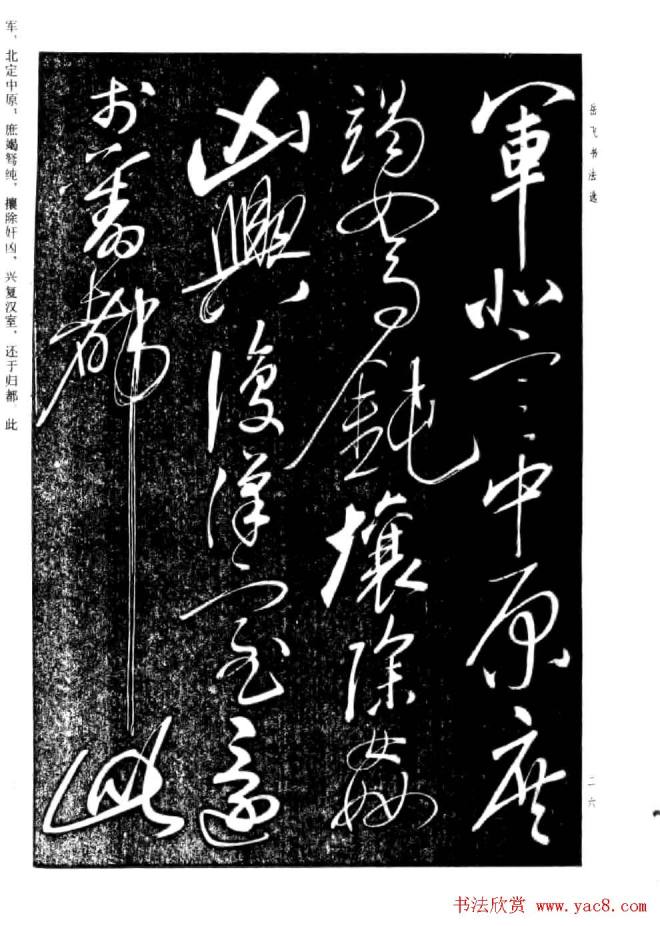 岳飞书法选
軍北定中原庶
竭驽鈍攘除姦
凶興復漢室還
於舊都此
二六
军，北定中原，庶竭驽纯，攘除奸凶，兴复汉室，还于归都。此
书法欣赏 www.yac8.com